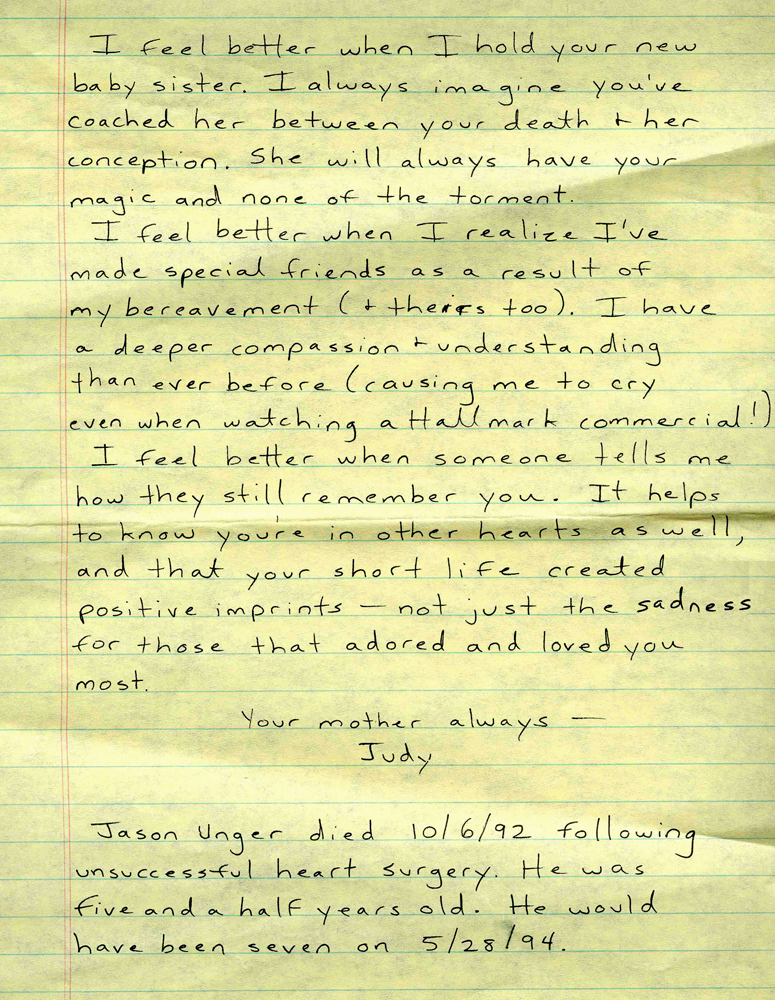 I feel better when I hold your new
baby sister. I always imagine you've
coached her between your death + her
conception. She will always have your
magic and none of the torment.
I feel better when I realize I've
made special friends as a result of
my bereavement (+ theirs too). I have
a deeper compassion + understanding
than ever before (causing me to cry
even when watching a Hallmark commercial!)
I feel better when someone tells me
how they still remember you. It helps
to know you're in other hearts as well,
and that your short life created
positive imprints — not just the sadness
for those that adored and loved you
most.
Your mother always —
Judy
Jason Unger died 10/6/92 following
unsuccessful heart surgery. He was
five and a half years old. He would
have been seven on 5/28/94.